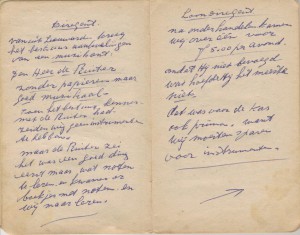 Beregoût
vanuit Leeuward. kreeg
het bestuur aanbevelingen
van een muzikant.
gen Heer de Ruiter
zonder papieren maar
goed muzikaal.
Zaten
met de Ruiter had.
zeiden wij geen instrumenten
te hebben.
maar de Ruiter zei
het was een goed ding
eerst maar wat noten
te leren en kwamen er
boekjes met noten. en
wij maar leren.
Loonoregoût
na onderhandelen kwamen
wij overeen voor
f 5.00 per avond
omdat Hij niet bevoegd
was hoefde Hij dit
niet.
Het was voor de kas
ook prima. want
wij moesten sparen
voor instrumenten.